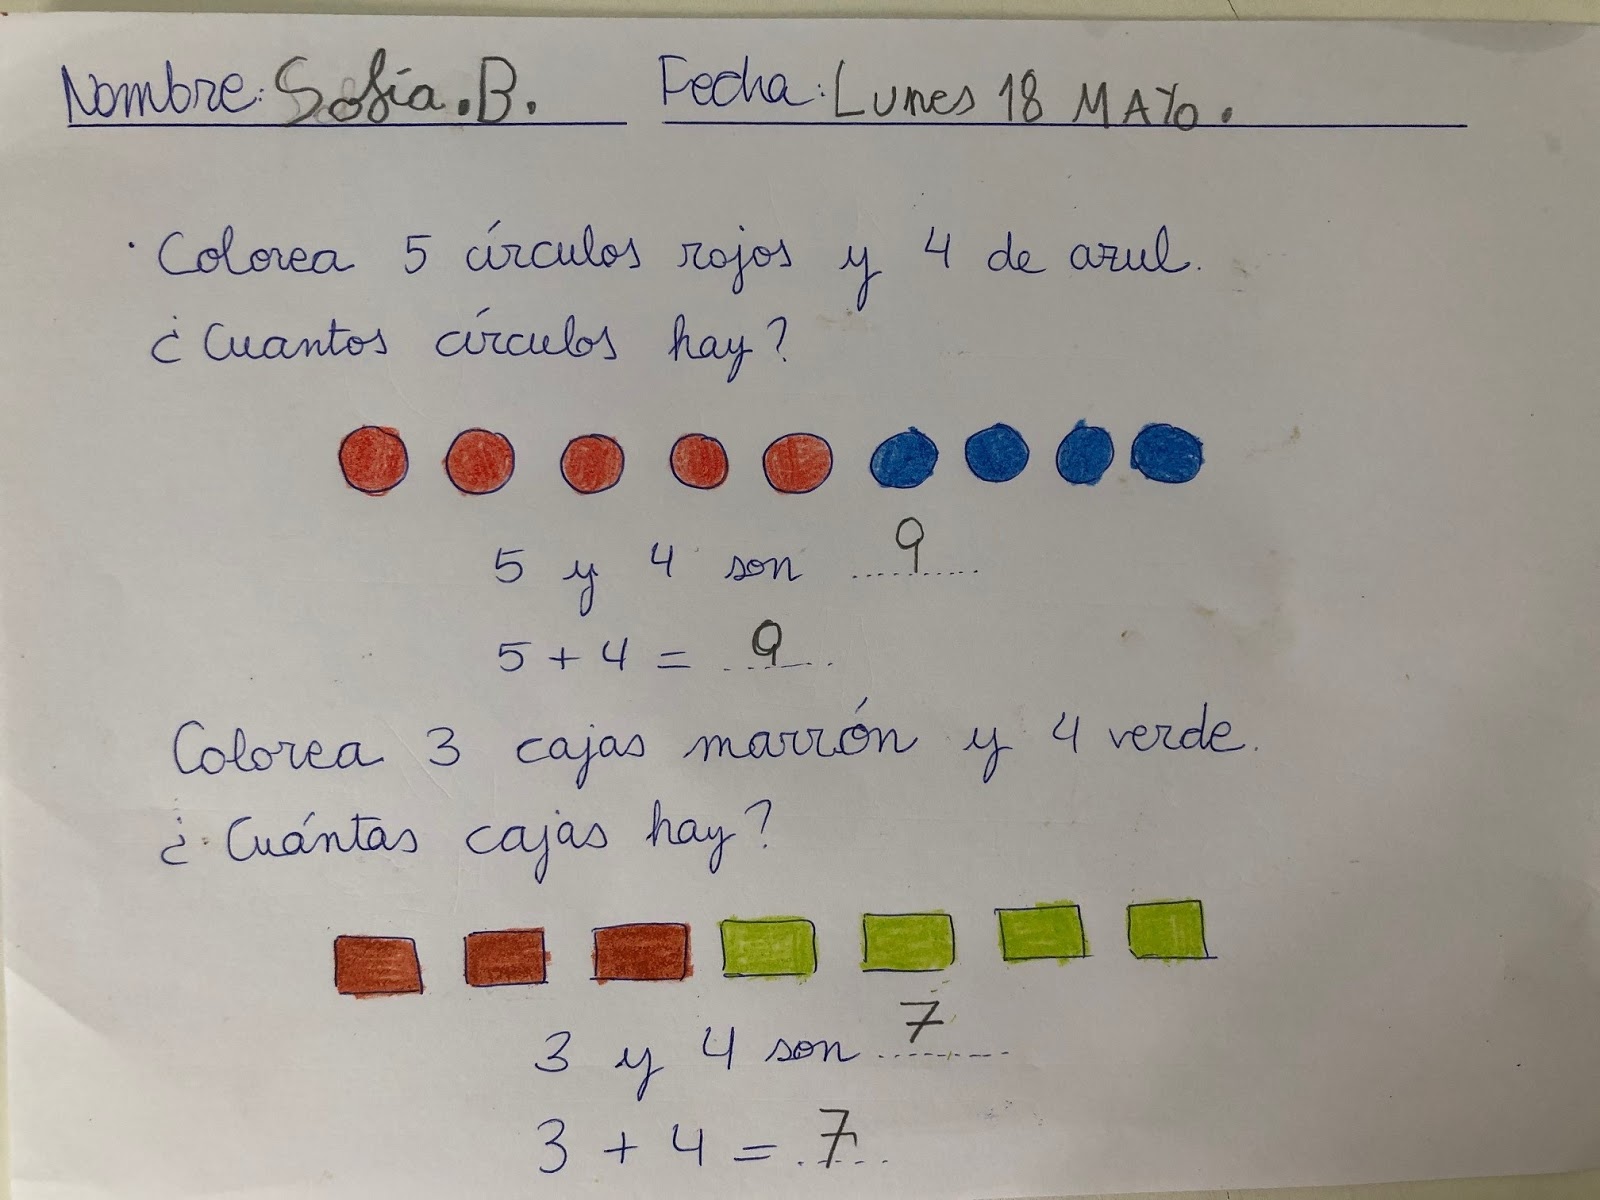 Nombre: Sofía.B. Fecha: Lunes 18 MAYo.
· Colorea 5 círculos rojos y 4 de azul.
¿Cuantos círculos hay?
5 y 4 son 9
5 + 4 = 9
Colorea 3 cajas marrón y 4 verde.
¿Cuántas cajas hay?
3 y 4 son 7
3 + 4 = 7